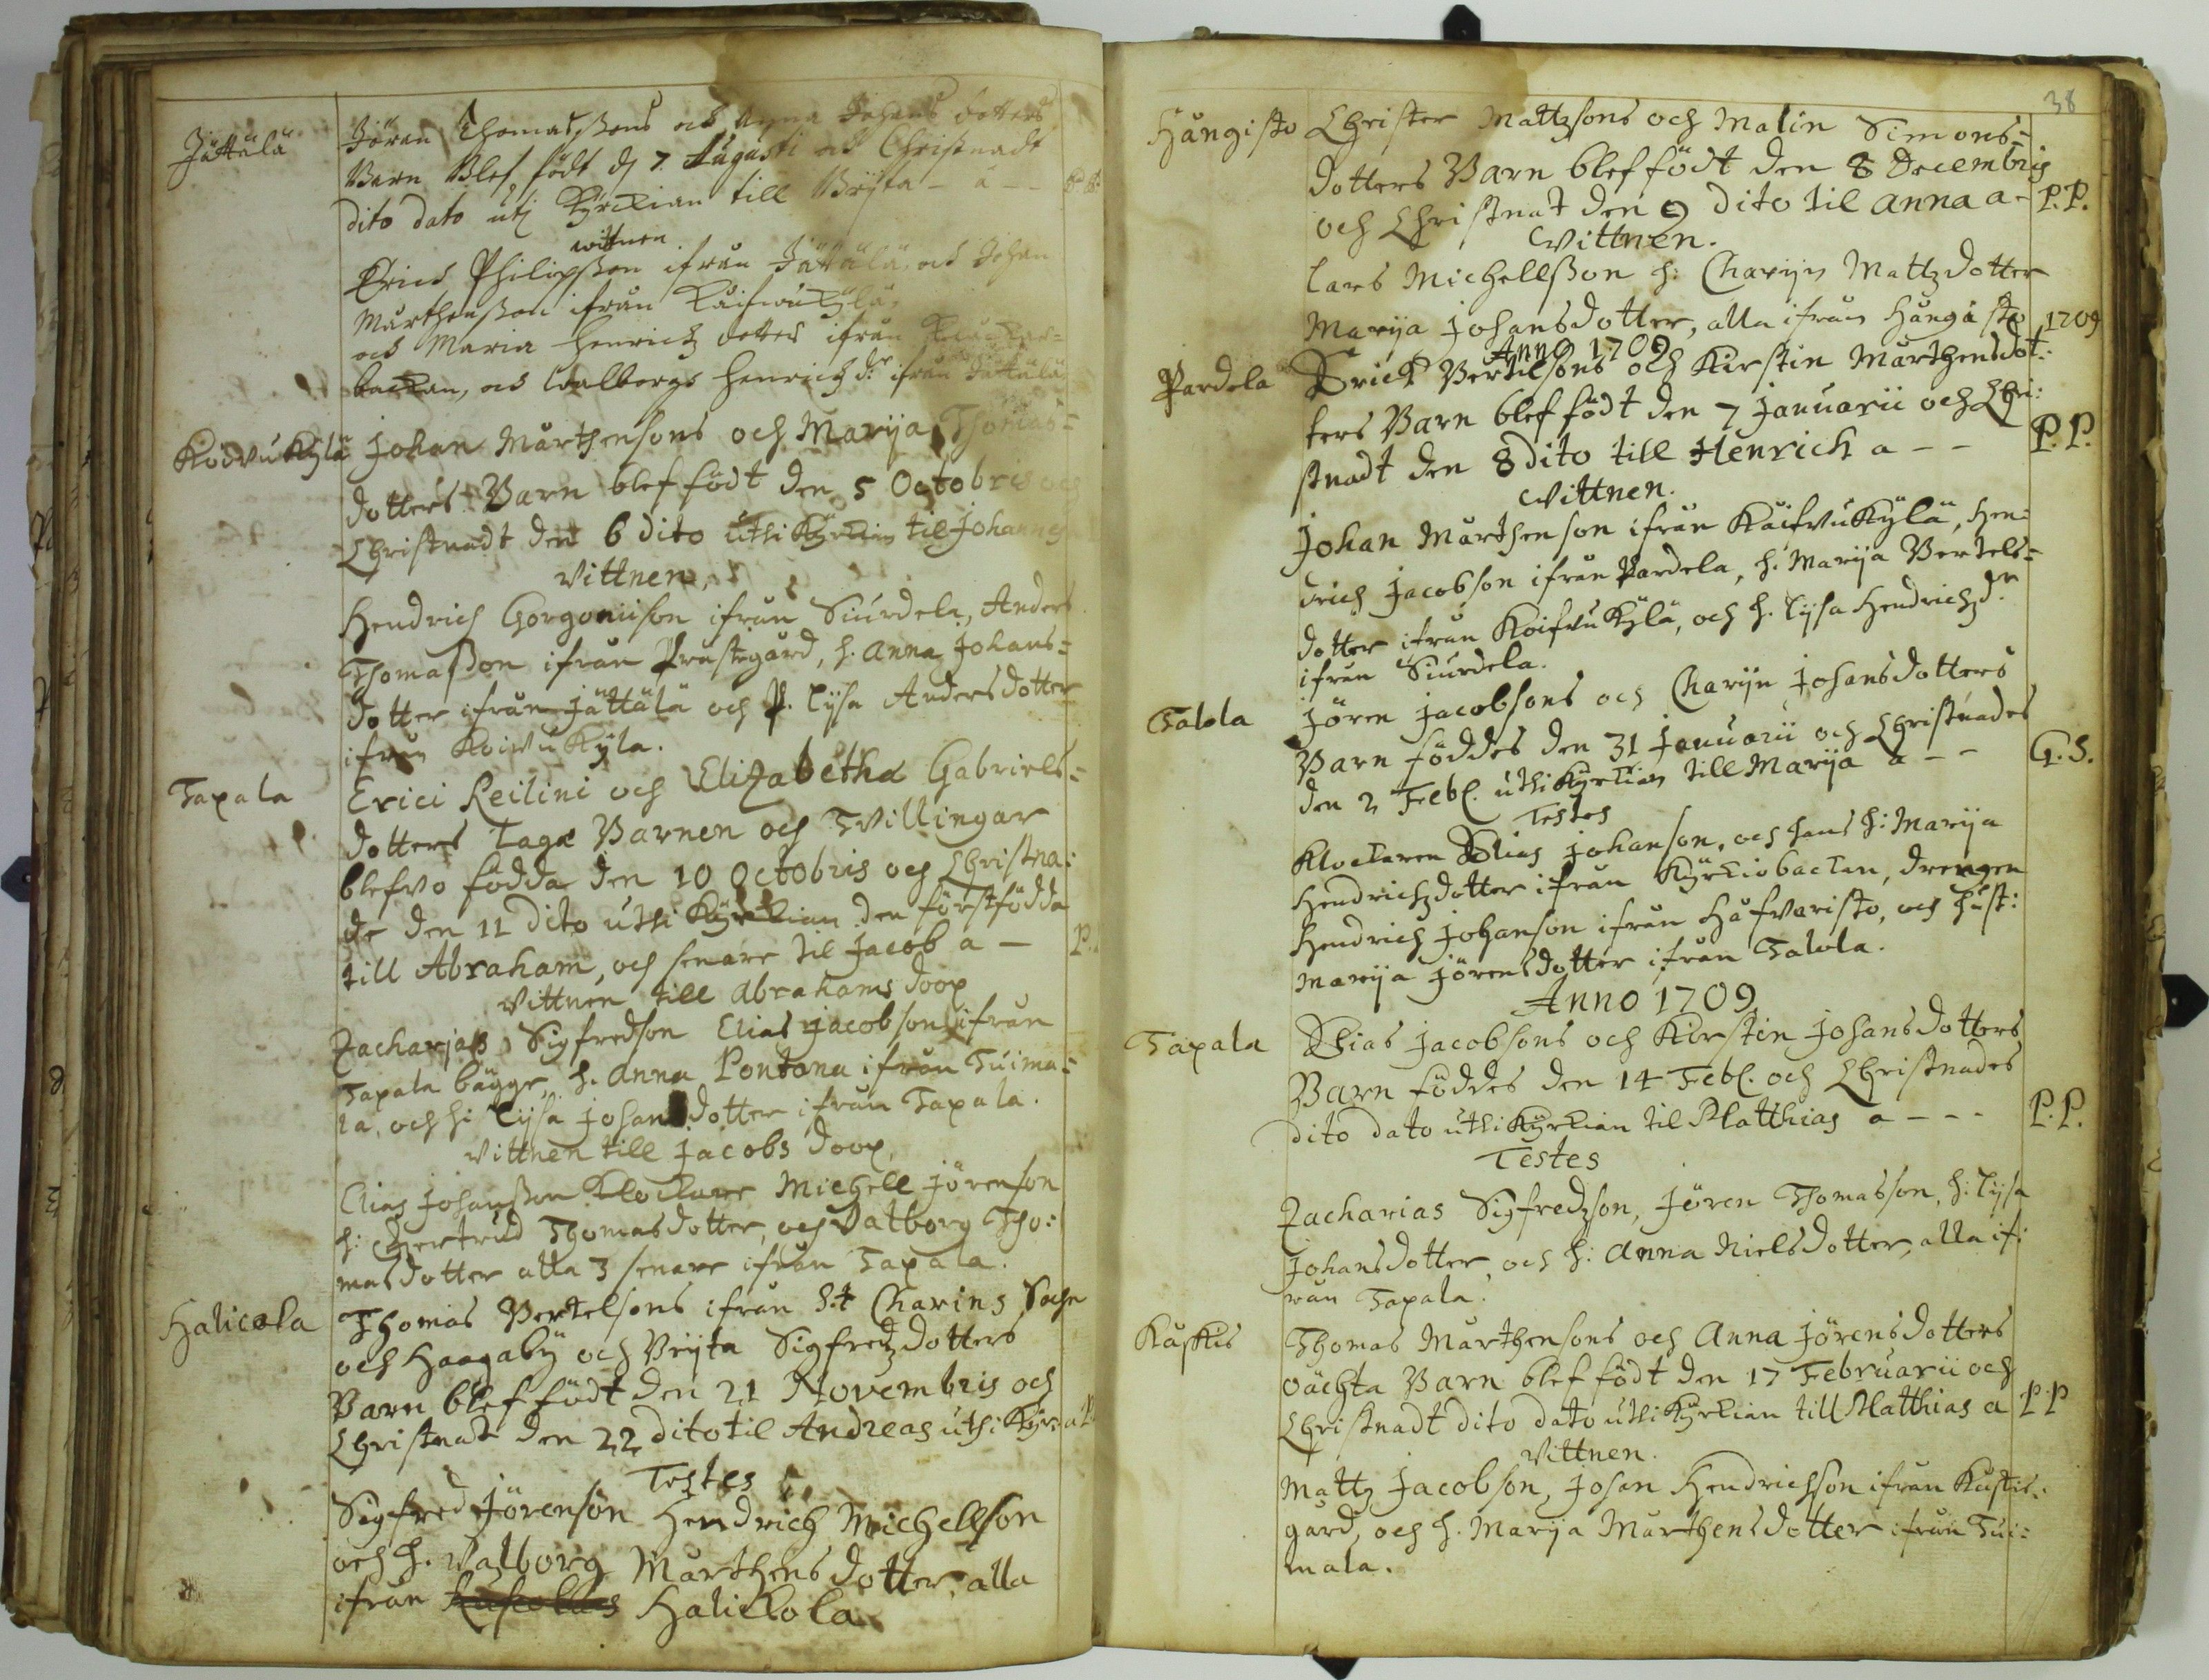 Jättälä
Jören Thomassons och Agna Johans dotters
Barn Blef födt dj 7. Augusti och Christnadt
dito dato utj Kyrckian till Brijta - a - -
wittnen.
Erich Philipsson ifrån Jättälä, och Johan
Mårthensson ifrån Kaifwukylä,
och Maria Henrichz dotter ifrån
backan, och Walborgs Henrichz dr ifrån Jättälä
Koivukylä
Johan Mårthensons och Marija Thomas=
dotters Barn blef födt den 5 Octobris och
Christnadt den 6 dito uthi Kyrkian til Johannes
Vittnen,
Hendrich Gorgoniison ifrån Siurdela, Anders
Thomasson ifrån Prästegård, h. Anna Johans=
dotter ifrån Jättälä och P. Lijsa Andersdotter
ifrån Koivukyla.
Tapala
Erici Reilini och Elizabetha Gabriels=
dotters Laga Barnen och Tvillingar
blefvo födda den 10 Octobris och Christna:
de den 11 dito uthi Kyrkian den förstfödda
till Abraham, och senare til Jacob a - P.
Vittnen till Abrahams doop
Zacharias Sigfredson Elias Jacobson ifrån
Tapala bägge, h. Anna Pontana ifrån Tuima=
la, och h: Lijsa Johansdotter ifrån Tapala.
Vittnen till Jacobs doop,
Elias Johansson Klockare Michell Jörenson
h: Giertrud Thomasdotter, och Valborg Tho:
masdotter alla 3 senare ifrån Tapala.
Halicola
Thomas Bertelsons ifrån S:t Charins Sochn
och Haagaby och Brijta Sigfredz dotters
Barn blef födt den 21 Novembris och
Christnat den 22 dito til Andreas uthi Kyr: a P
Testes
Sigfred Jörenson Hendrich Michellson
och h. Valborg Mårthens dotter, alla
ifrån Halikola
38
Hångisto
Christer Mattzsons och Malin Simons=
dotters Barn blef födt den 8 Decembris
och Christnat den 9 dito til Anna a - P. P.
Vittnen.
Lars Michellsson h: Charijn Mattzdotter
Marija Johansdotter, alla ifrån Hångisto
1709
Anno 1709
Pardela
Erich Bertilsons och Kirstin Mårthensdot:
ters Barn blef födt den 7 Januarii och Chri:
stnadt den 8 dito till Henrich a - - P. P.
Vittnen.
Johan Mårthenson ifrån Kaifvukylä, Hen=
drich Jacobson ifrån Pardela, h. Marija Bertels=
dotter ifrån Koifvukylä, och h. Lijsa Hendrichz dr
ifrån Siurdela.
Talola
Jören Jacobsons och Charijn Johansdotters
Barn föddes den 31 Januarii och Christnades
den 2 Feb. uthi Kyrkian till Marija a - - G. S.
Testes
Klockaren Elias Johanson, och hans h: Marija
Hendrichzdotter ifrån Kyrkiobackan, drengen
Hendrich Johanson ifrån Hafvaristo, och hust:
Marija Jörensdotter ifrån Talola.
Anno 1709
Tapala
Elias Jacobsons och Kirstin Johansdotters
Barn föddes den 14 Feb. och Christnades
dito dato uthi Kyrkian til Matthias a - - - P. P.
Testes
Zacharias Sigfredzson, Jören Thomasson, h: Lijsa
Johansdotter, och h: Anna Nielsdotter, alla if:
rån Tapala.
Kaskis
Thomas Mårthensons och Anna Jörensdotters
oächta Barn blef födt den 17 Februarii och
Christnadt dito dato uthi Kyrkian till Matthias a P. P
Vittnen.
Mattz Jacobson, Johan Hendrichson ifrån Kaskis:
gård, och h. Marija Mårthensdotter ifrån Tui=
mala.